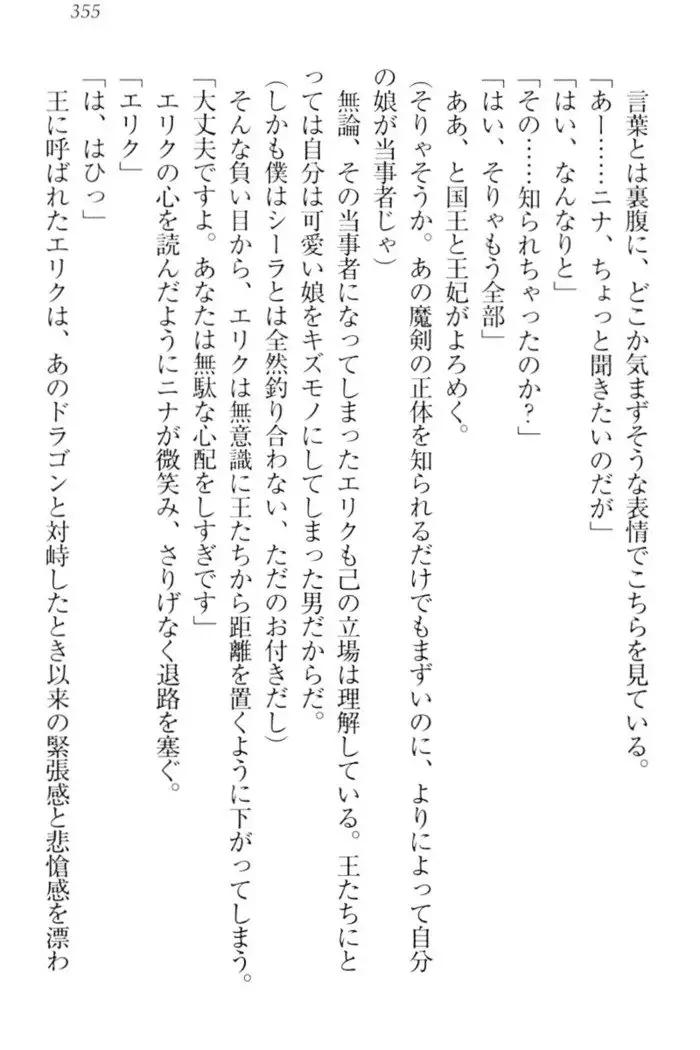 355
言葉とは裏腹に、どこか気まずそうな表情でこちらを見ている。
「あー……ニナ、ちょっと聞きたいのだが」
「はい、なんなりと」
「その……知られちゃったのか?」
「はい、そりゃもう全部」
ああ、と国王と王妃がよろめく。
(そりゃそうか。あの魔剣の正体を知られるだけでもまずいのに、よりによって自分
の娘が当事者じゃ)
無論、その当事者になってしまったエリクも己の立場は理解している。王たちにと
っては自分は可愛い娘をキズモノにしてしまった男だからだ。
(しかも僕はシーラとは全然釣り合わない、ただのお付きだし)
そんな負い目から、エリクは無意識に王たちから距離を置くように下がってしまう。
「大丈夫ですよ。あなたは無駄な心配をしすぎです」
エリクの心を読んだようにニナが微笑み、さりげなく退路を塞ぐ。
「エリク」
「は、はひっ」
王に呼ばれたエリクは、あのドラゴンと対峙したとき以来の緊張感と悲愴感を漂わ